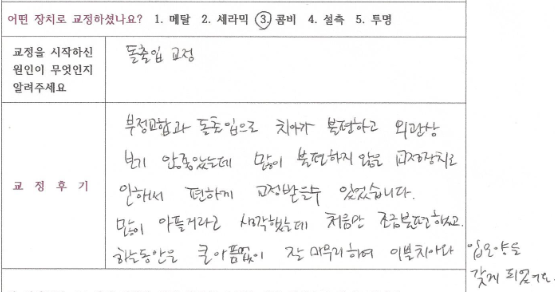 어떤 장치로 교정하셨나요? 1. 메탈 2. 세라믹 3. 콤비 4. 설측 5. 투명
교정을 시작하신
원인이 무엇인지
알려주세요
돌출입 교정
교 정 후 기
부정교합과 돌출입으로 치아가 불편하고 외관상
보기 안좋았는데 많이 불편하지 않은 교정장치로
인해서 편하게 교정받을수 있었습니다.
많이 아플거라고 생각했는데 처음만 조금불편했고
하는동안은 큰아픔없이 잘 마무리하여 이쁜치아와 입모양을
갖게 되었어요.